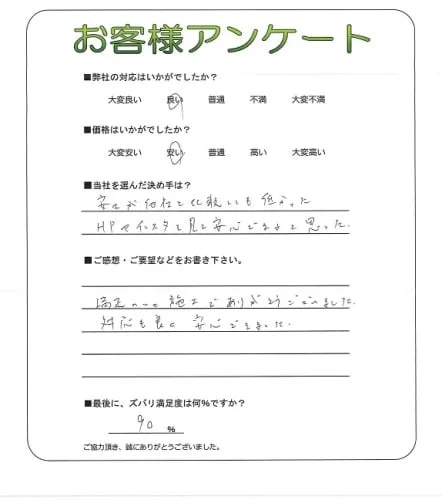 お客様アンケート
■弊社の対応はいかがでしたか？
大変良い 良い 普通 不満 大変不満
■価格はいかがでしたか？
大変安い 安い 普通 高い 大変高い
■当社を選んだ決め手は？
他社と比較しても低かった
HPやインスタを見て安心できると思った。
■ご感想・ご要望などをお書き下さい。
満足のいく施工でありがとうございました。
対応も良く安心できました。
■最後に、ズバリ満足度は何%ですか？
90 %
ご協力頂き、誠にありがとうございました。